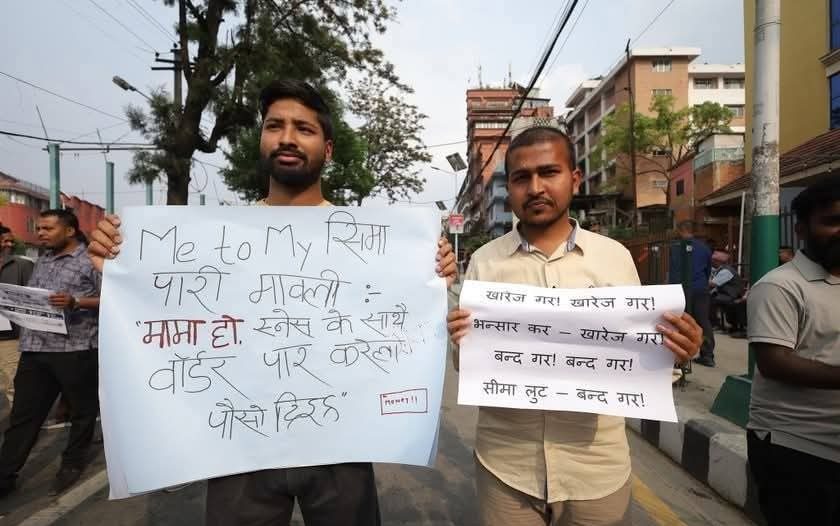 Me to My सिमा
पारी मावली :-
"मामा हो, स्नेस के साथै
वॉर्डर पार करेला
पौसो दिइह"
Money!!
खारेज गर! खारेज गर!
भन्सार कर – खारेज गर!
बन्द गर! बन्द गर!
सीमा लुट – बन्द गर!